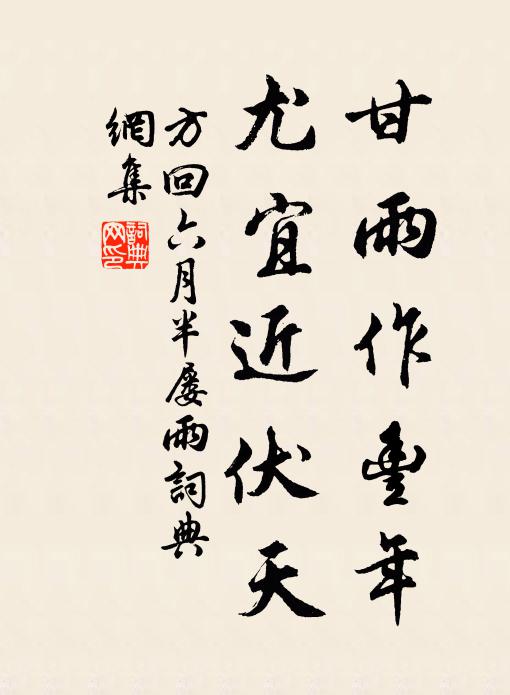 甘雨作豊年
尤宜近伏天
方回六月半屡雨詞典
網集
詞典
网印